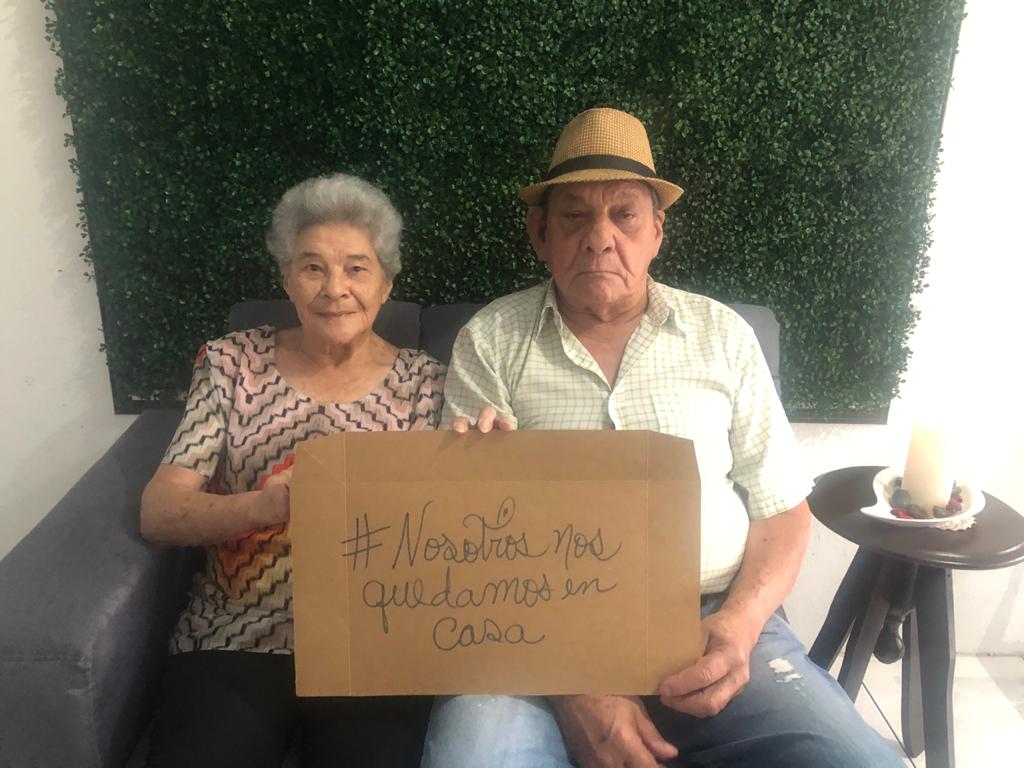 #Nosotros nos
quedamos en
casa